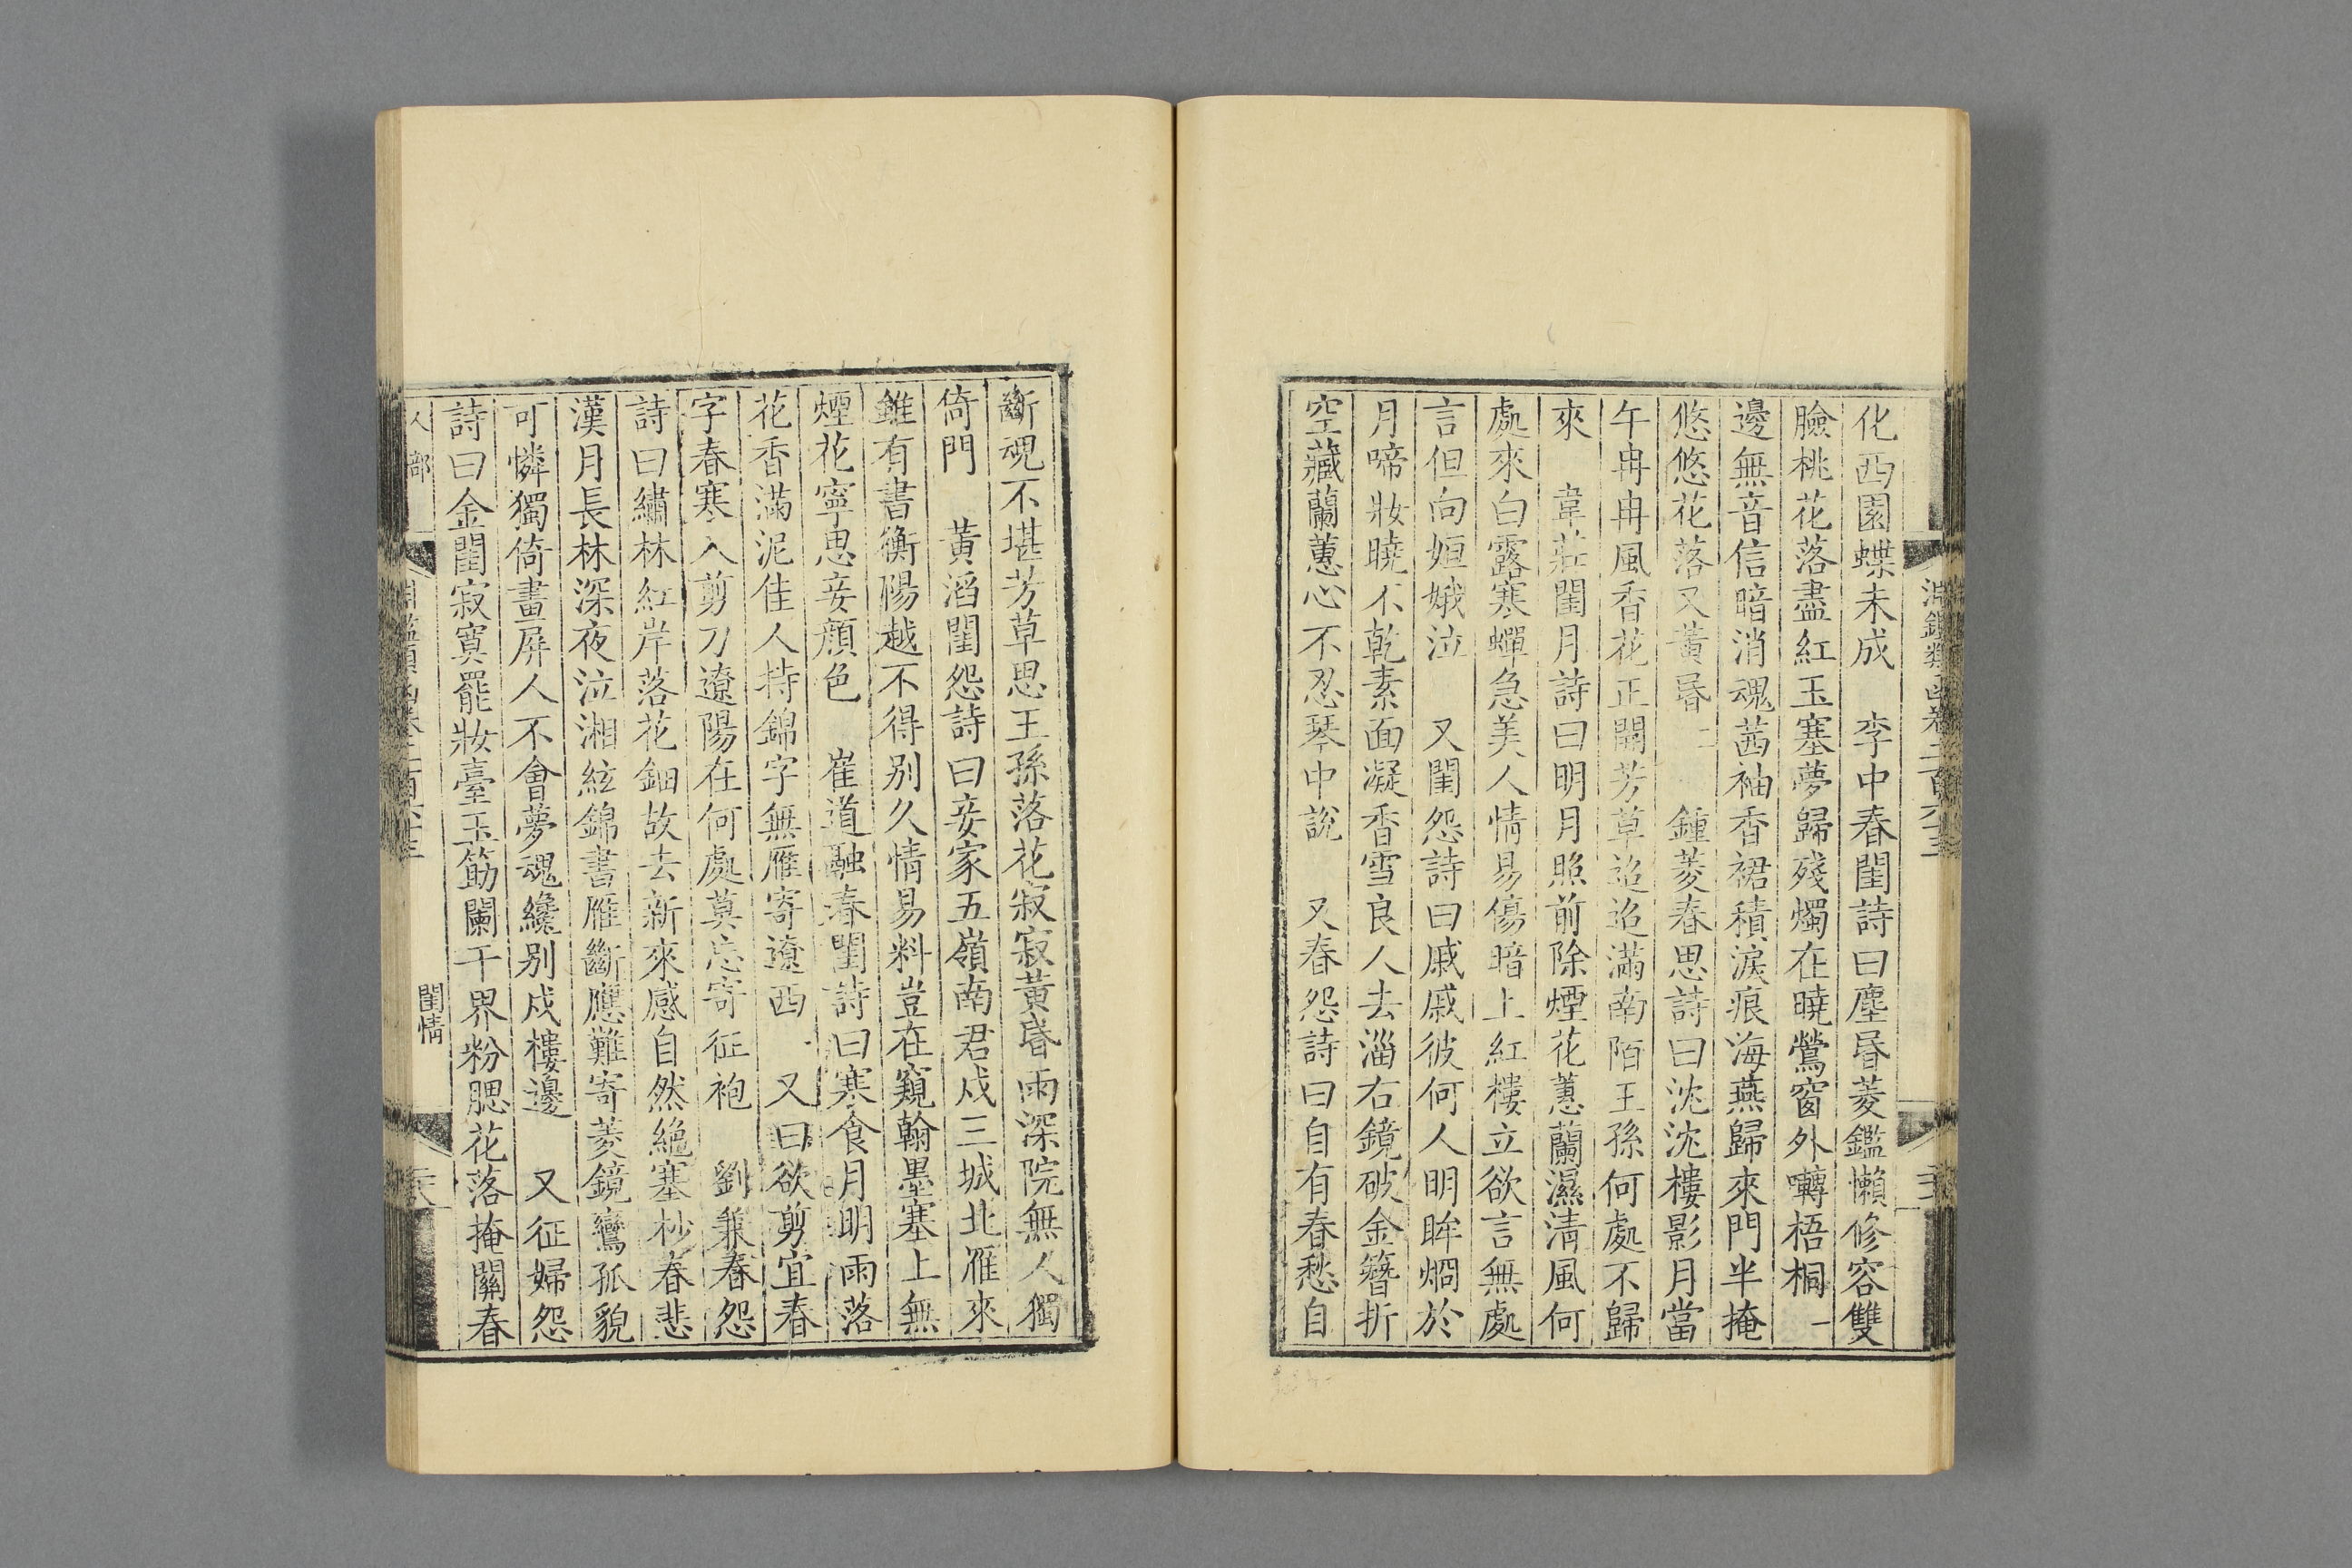 淵鑑類函卷二百六十三
化西園蝶未成　李中春閨詩曰塵昬菱鑑懶修容雙
臉桃花落盡紅玉塞夢歸殘燭在曉鶯窗外囀梧桐一
邊無音信暗消魂茜袖香裙積淚痕海燕歸來門半掩
悠悠花落又黃昬　二　鍾菱春思詩曰沈沈樓影月當
午冉冉風香花正開芳草迢迢滿南陌王孫何處不歸
來　韋莊閨月詩曰明月照前除煙花蕙蘭濕清風何
處來白露寒蟬急美人情易傷暗上紅樓立欲言無處
言但向姮娥泣　又閨怨詩曰戚戚彼何人明眸烱於
月啼妝曉不乾素面凝香雪良人去淄右鏡破金簪折
空藏蘭蕙心不忍琴中說　又春怨詩曰自有春愁自
斷魂不堪芳草思王孫落花寂寂黃昏雨深院無人獨
倚門　黃滔閨怨詩曰妾家五嶺南君戍三城北雁來
雖有書衡陽越不得別久情易料豈在窺翰墨塞上無
煙花寧思妾顏色　崔道融春閨詩曰寒食月明雨落
花香滿泥佳人持錦字無雁寄遼西　又曰欲剪宜春
字春寒入剪刀遼陽在何處莫忘寄征袍　劉兼春怨
詩曰繡林紅岸落花鈿故去新來感自然絕塞杪春悲
漢月長林深夜泣湘絃錦書雁斷應難寄菱鏡鸞孤貌
可憐獨倚畫屏人不會夢魂纔別戍樓邊　又征婦怨
詩曰金閨寂寞罷妝臺玉筯闌干界粉腮花落掩關春
人部
淵鑑類函卷二百六十三
閨情